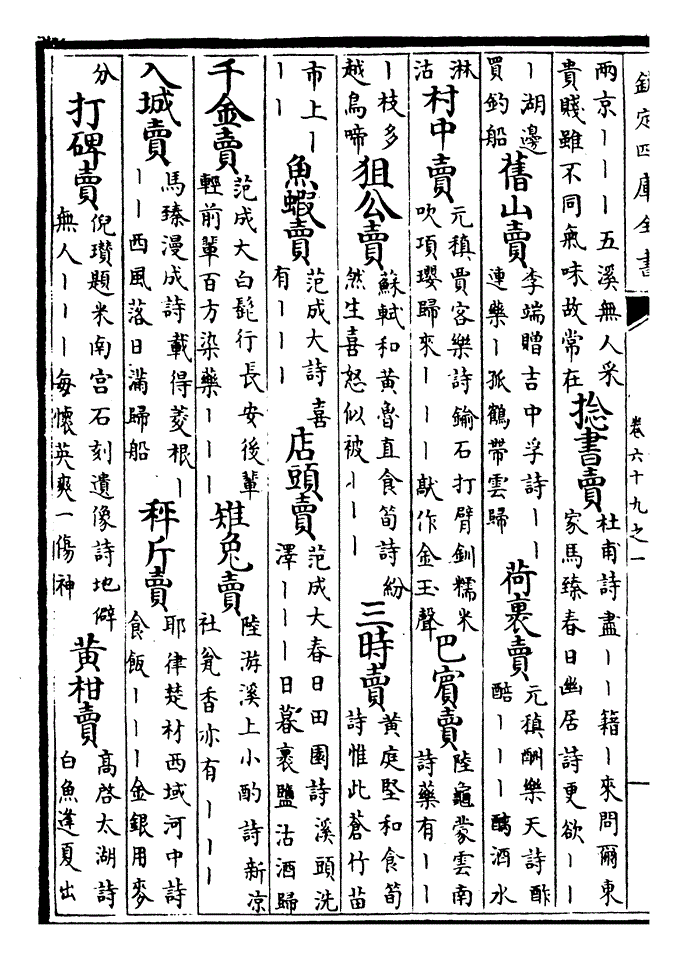 欽定四庫全書
卷六十九之一
兩京｜｜｜五溪無人采
貴賤雖不同氣味故常在
捴書賣
杜甫詩盡｜｜籍｜來問爾東
家馬臻春日幽居詩更欲｜｜
｜湖邊
買釣船
舊山賣
李端贈吉中孚詩｜｜
連藥｜孤鶴帶雲歸
荷裏賣
元稹酬樂天詩酢
醅｜｜｜醨酒水
淋
沽
村中賣
元稹賈客樂詩鍮石打臂釧糯米
吹項瓔歸來｜｜｜敲作金玉聲
巴賓賣
陸龜蒙雲南
詩藥有｜｜
｜枝多
越鳥啼
狙公賣
蘇軾和黃魯直食筍詩紛
然生喜怒似被｜｜｜
三時賣
黃庭堅和食筍
詩惟此蒼竹苗
市上｜
｜｜
魚蝦賣
范成大詩喜
有｜｜｜
店頭賣
范成大春日田園詩溪頭洗
澤｜｜｜日暮裹鹽沽酒歸
千金賣
范成大白髭行長安後輩
輕前輩百方染藥｜｜｜
雉兔賣
陸游溪上小酌詩新凉
社瓮香亦有｜｜｜
入城賣
馬臻漫成詩載得菱根｜
｜｜西風落日滿歸船
秤斤賣
耶律楚材西域河中詩
食飯｜｜｜金銀用麥
分
打碑賣
倪瓚題米南宫石刻遺像詩地僻
無人｜｜｜每懷英爽一傷神
黃柑賣
高啓太湖詩
白魚逢夏出